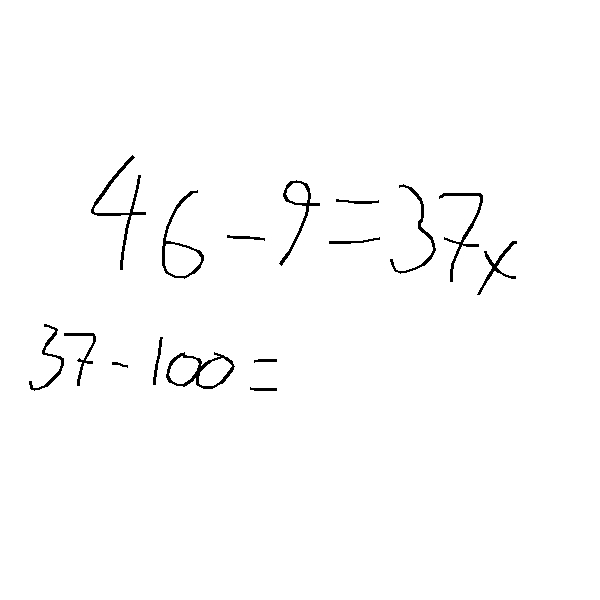 46-9=37x
37-100=